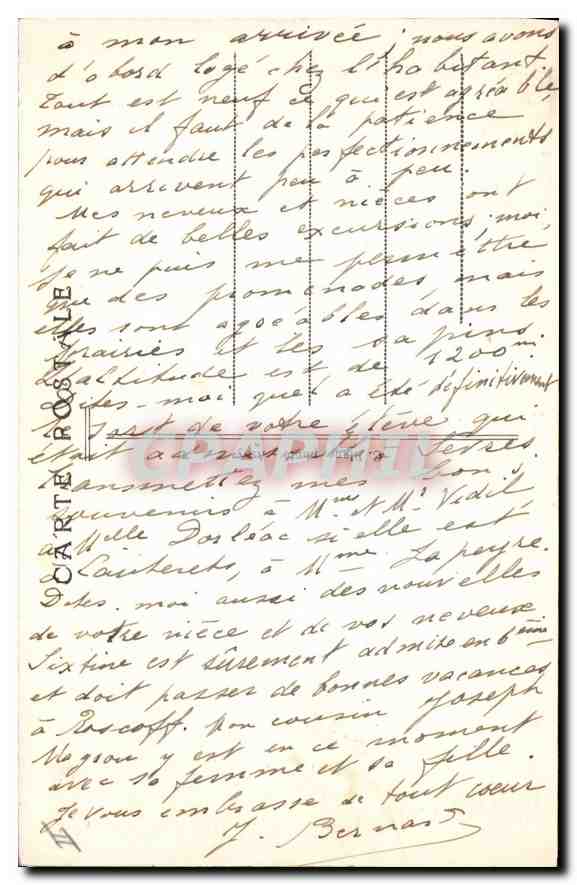 à mon arrivée ; nous avons
d'abord logé chez l'habitant.
Tout est neuf ce qui est agréable,
mais il faut de la patience
pour attendre les perfectionnements
qui arrivent peu à peu.
Mes neveux et nièces ont
fait de belles excursions, moi
je ne puis me permettre
que des promenades, mais
elles sont agréables dans les
prairies et les sapins.
L'altitude est de 1200 m.
Dites-moi quel a été définitivement
le sort de votre élève qui
était
Transmettez mes bons
souvenirs à Mme et Mr Vidil
à Mlle Dorléac si elle est
à Cauterets, à Mme Lapeyre.
Dites-moi aussi des nouvelles
de votre nièce et de vos neveux
Sixtine est sûrement admise en 6ème
et doit passer de bonnes vacances
à Roscoff. Mon cousin Joseph
y est en ce moment
avec sa femme et sa fille.
Je vous embrasse de tout coeur
J. Bernard
CARTE POSTALE
CPAPHIL